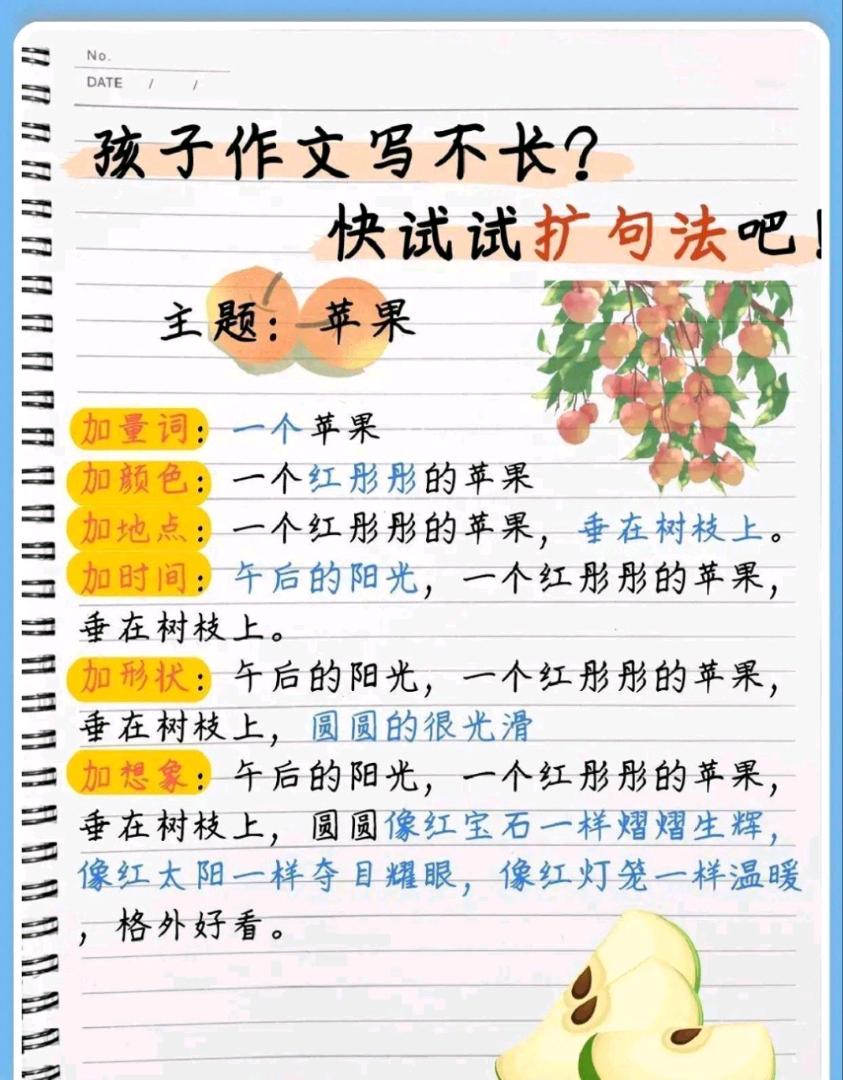 No.
DATE / /
孩子作文写不长？
快试试扩句法吧！
主题：苹果
加量词：一个苹果
加颜色：一个红彤彤的苹果
加地点：一个红彤彤的苹果，垂在树枝上。
加时间：午后的阳光，一个红彤彤的苹果，
垂在树枝上。
加形状：午后的阳光，一个红彤彤的苹果，
垂在树枝上，圆圆的很光滑
加想象：午后的阳光，一个红彤彤的苹果，
垂在树枝上，圆圆像红宝石一样熠熠生辉，
像红太阳一样夺目耀眼，像红灯笼一样温暖
，格外好看。